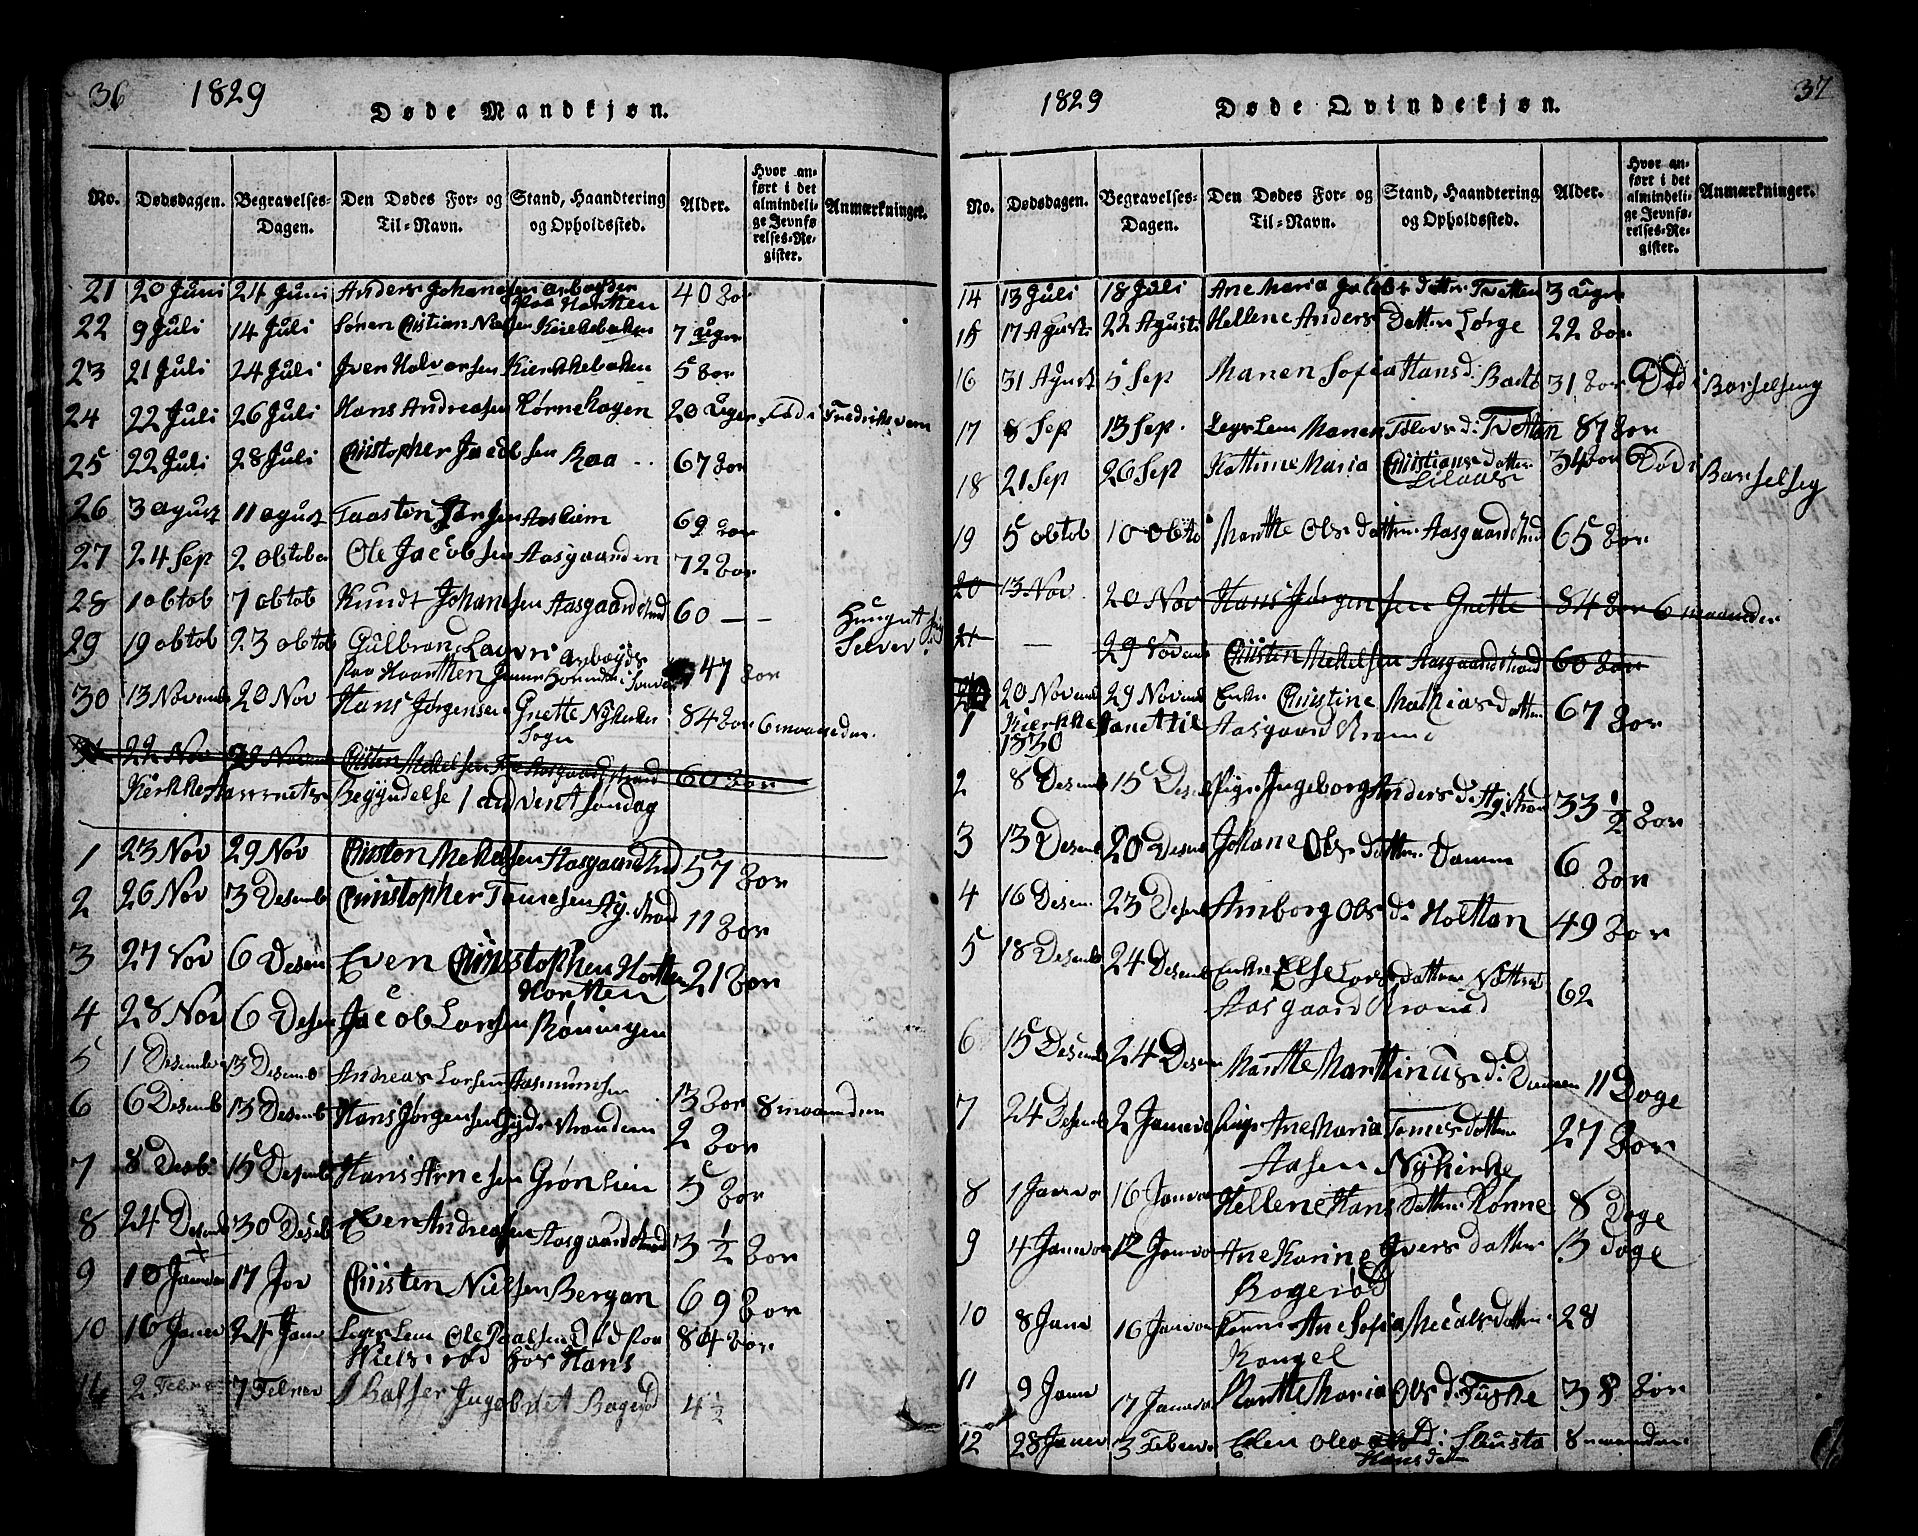 36 1829 Døde Mandkjøn.
No. Dødsdagen. Begravelses-Dagen. Den Dødes For- og Til-Navn. Stand, Haandtering og Opholdssted. Alder. Hvor anført i det almindelige Jevnførelses-Register. Anmærkninger.
21 20 Juni 24 Juni Anders Johansen arbeyder
Paa Hortten 40 Aar
22 9 Juli 14 Juli Søren Cristian Nielsen Kirkebaken 7 uger
23 21 Juli 24 Juli Iver Halvorsen Kierkkebaken 5 Aar
24 22 Juli 26 Juli Hans Andreasen Rørnehagen 20 uger Fød i Fredriksvern
25 22 Juli 28 Juli Christopher Jacobsen Raa 67 Aar
26 3 agust 11 agust Taasten Aasliem 69 Aar
27 24 Sep 2 obtober Ole Jacobsen Aasgaarden 72 Aar
28 1 obtob 7 obtob Knudt Johansen Aasgaardstrand 60 — —
29 19 obtob 23 obtob Gulbran arbeyds
Paa Hortten 47 Aar
30 13 Novemb 20 Nov Hans Jørgensen Grette Nykirke
Sogn 84 Aar 6 maaneder
22 Nov 29 Novemb Cristen Mekelsen Aasgaardstrand 60 Aar
Kirkke Aarrnets Begyndelse 1 advent søndag
1 23 Nov 29 Nov Cristen Mekelsen Aasgaardstrand 57 Aar
2 26 Nov 3 Desemb Christopher Tomesen 11 Aar
3 27 Nov 6 Desem Even Christophersen Hortten
Hortten 21 Aar
4 28 Nov 6 Desem Jacob Larsen Røningen
5 1 Desember 13 Desemb Andreas Larsen Aasmundsen 13 Aar 8 maaneder
6 6 Desemb 13 Desemb Hans Jørgensen 2 Aar
7 8 Desb 15 Desemb Hans Arnesen Grønlien 5 Aar
8 24 Desemb 30 Desemb Even Andreasen Aasgaardstrand 3 1/2 Aar
9 10 Januar 17 Jan Cristen Nielsen Bergan 69 Aar
10 16 Januar 24 Janu Legs Lem Ole Paalsen Død Paa
Nielsrød hos Hans 84 Aar
2 Febru 7 Februar Ingebret Bagerød 4 1/2
1829 Døde Qvindekjøn. 37
No. Dødsdagen. Begravelses-Dagen. Den Dødes For- og Til-Navn. Stand, Haandtering og Opholdssted. Alder. Hvor anført i det almindelige Jevnførelses-Register. Anmærkninger.
14 13 Juli 18 Juli Ane Maria Jacobs datter Tvetten 3 uger
15 17 Agusti 22 Agusti Hellene Anders Datter Sørge 22 Aar
16 31 Agust 5 Sep Maren Sofia Hans d: Bakke 31 Aar Død i Barselseng
17 8 Sep 13 Sep. Legs Lem Maren Tolovs d: Tvetten 87 Aar
18 21 Sep 26 Sep Kattrine Maria Christians datter 34 aar Død i Barselseg
19 5 obtob 10 obto Marthe Ols datter Aasgaardstrand 65 Aar
20 13 Nov 20 Nov Hans Jørgensen Grette 84 Aar 6 maaneder
21 — 29 Novemb Christen Mekelsen Aasgaardstrand 60 Aar
20 Novemb 29 Novemb Enke Christine Mathias datter 67 Aar
1 Kierkke til Aasgaard
1830
2 8 Desemb 15 Desem Pige Ingeborg Anders d: 33 1/2 Aar
3 13 Desemb 20 Desem Johane Ols datter Damen 6 Aar
4 16 Desem 23 Desemb Amborg Ols d: Holttan 49 Aar
5 18 Desemb 24 Desemb Enke Else Lars datter
Aasgaard 62
6 15 Desemb 24 Desem Marthe Marttinus d: Dammen 11 Dage
7 24 Desemb 2 Januar Pige Ane Maria Tomes datter
Aasen Nykirke 27 Aar
8 1 Janua 16 Janua Hellene Hans datter Rønne 8 Dage
9 4 Janua 12 Janua Ane Karine Ivers datter
Bagerød 13 dage
10 8 Janu 16 Janua Ane Sofia datter
Rangel 28
11 9 Janu 17 Janua Marthe Maria Ols d: 38 Aar
12 28 Janu 3 Febru Elen Olea d:
Hans datter 8 maaneder